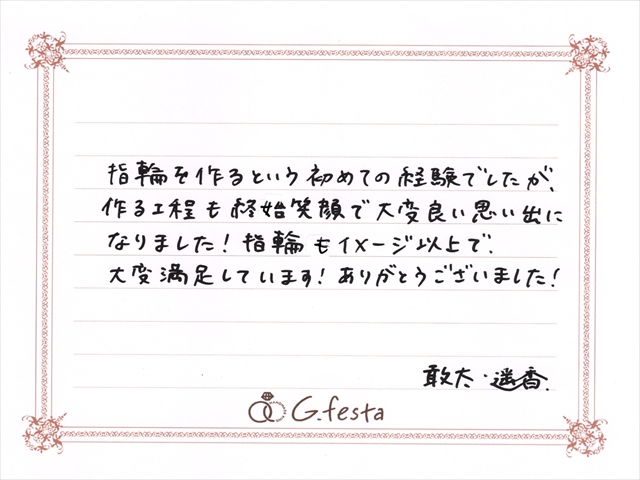 指輪を作るという初めての経験でしたが、
作る工程も終始笑顔で大変良い思い出に
なりました！指輪もイメージ以上で、
大変満足しています！ありがとうございました！
敢太・遥香.
G.festa